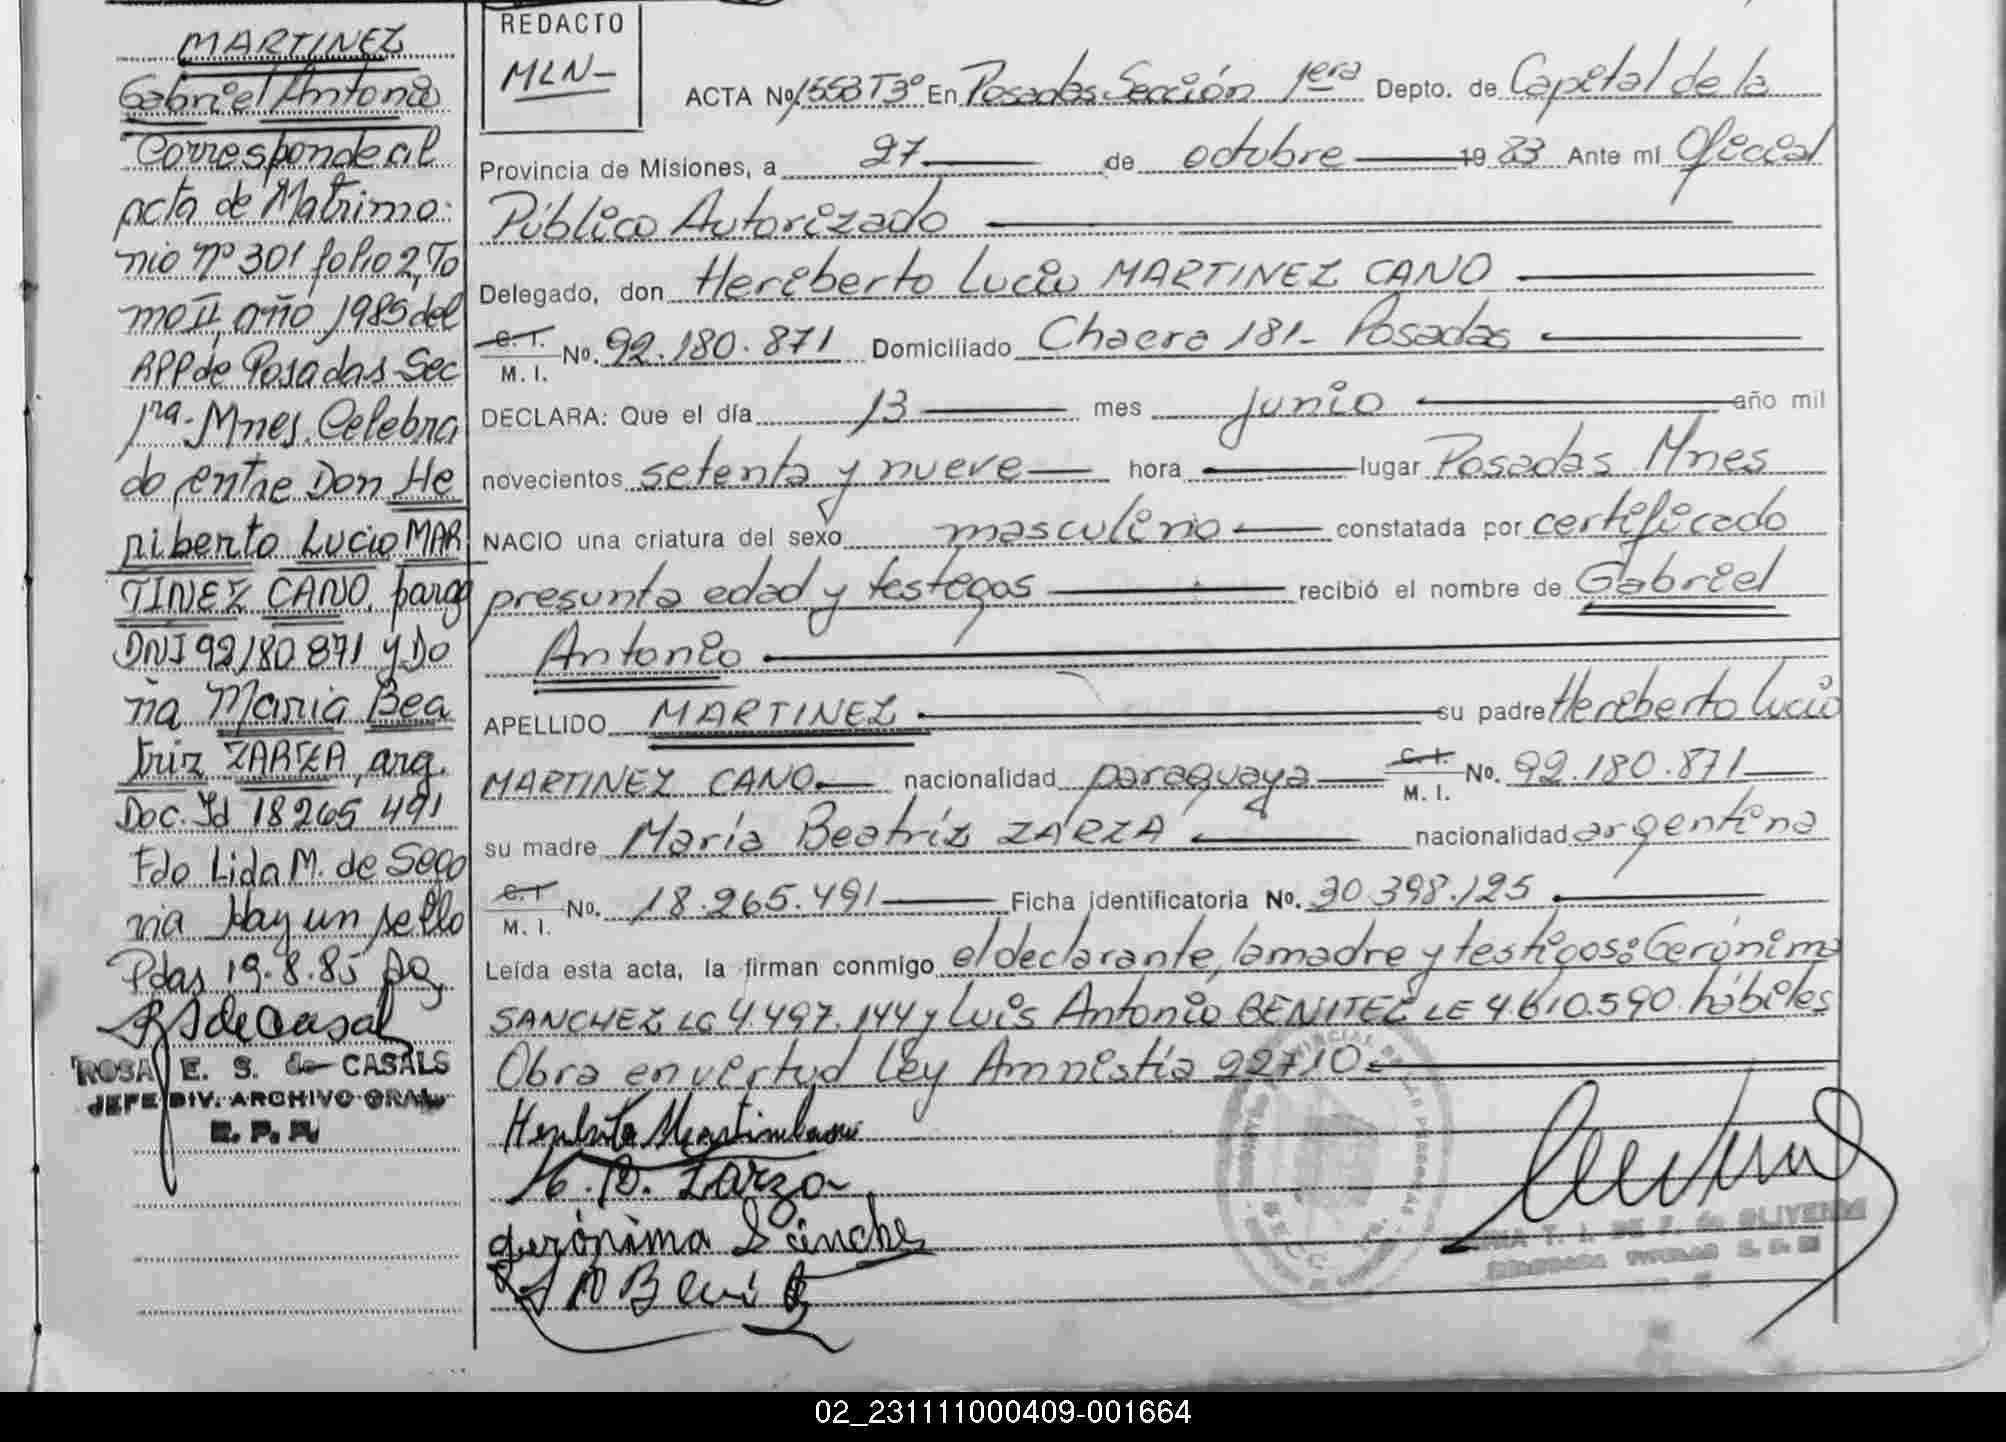 MARTINEZ
Gabriel Antonio
Corresponde al
acta de Matrimo-
nio nº 301 folio 2, To
mo II año 1985 del
RPP de Posadas Sec
1ra. Mnes. Celebra
do entre Don He
riberto Lucio MAR
TINEZ CANO, parag
DNI 92180871 y Do
ña Maria Bea
triz ZARZA, arg.
Doc. Id 18265491
Fdo Lida M. de Sego
via Hay un sello
Pdas 19.8.85
ROSA E. S. de CASALS
JEFE DIV. ARCHIVO GRAL
R. P. P.
REDACTO
MLN-
ACTA Nº 1553 T3º En Posadas Sección 1era Depto. de Capital de la
Provincia de Misiones, a 27 de octubre 19 83 Ante mi Oficial
Público Autorizado
Delegado, don Heriberto Lucio MARTINEZ CANO
C. I. M. I. No. 92.180.871 Domiciliado 181- Posadas
DECLARA: Que el día 13 mes junio año mil
novecientos setenta y nueve hora lugar Posadas Mnes
NACIO una criatura del sexo masculino constatada por certificado
presunta edad y testigos recibió el nombre de Gabriel
Antonio
APELLIDO MARTINEZ su padre Heriberto Lucio
MARTINEZ CANO nacionalidad paraguaya C. I. M. I. No. 92.180.871
su madre María Beatríz ZARZA nacionalidad argentina
C. I M. I. No. 18.265.491 Ficha identificatoria No. 30.398.125
Leída esta acta, la firman conmigo el declarante, la madre y testigos: Gerónima
SANCHEZ LC 4.497.144 y Luis Antonio BENITEZ LE 4.610.590 hábiles
Obra en virtud Ley Amnistía 22710
M. B. Zarza
gerónima Sánche
02_231111000409-001664